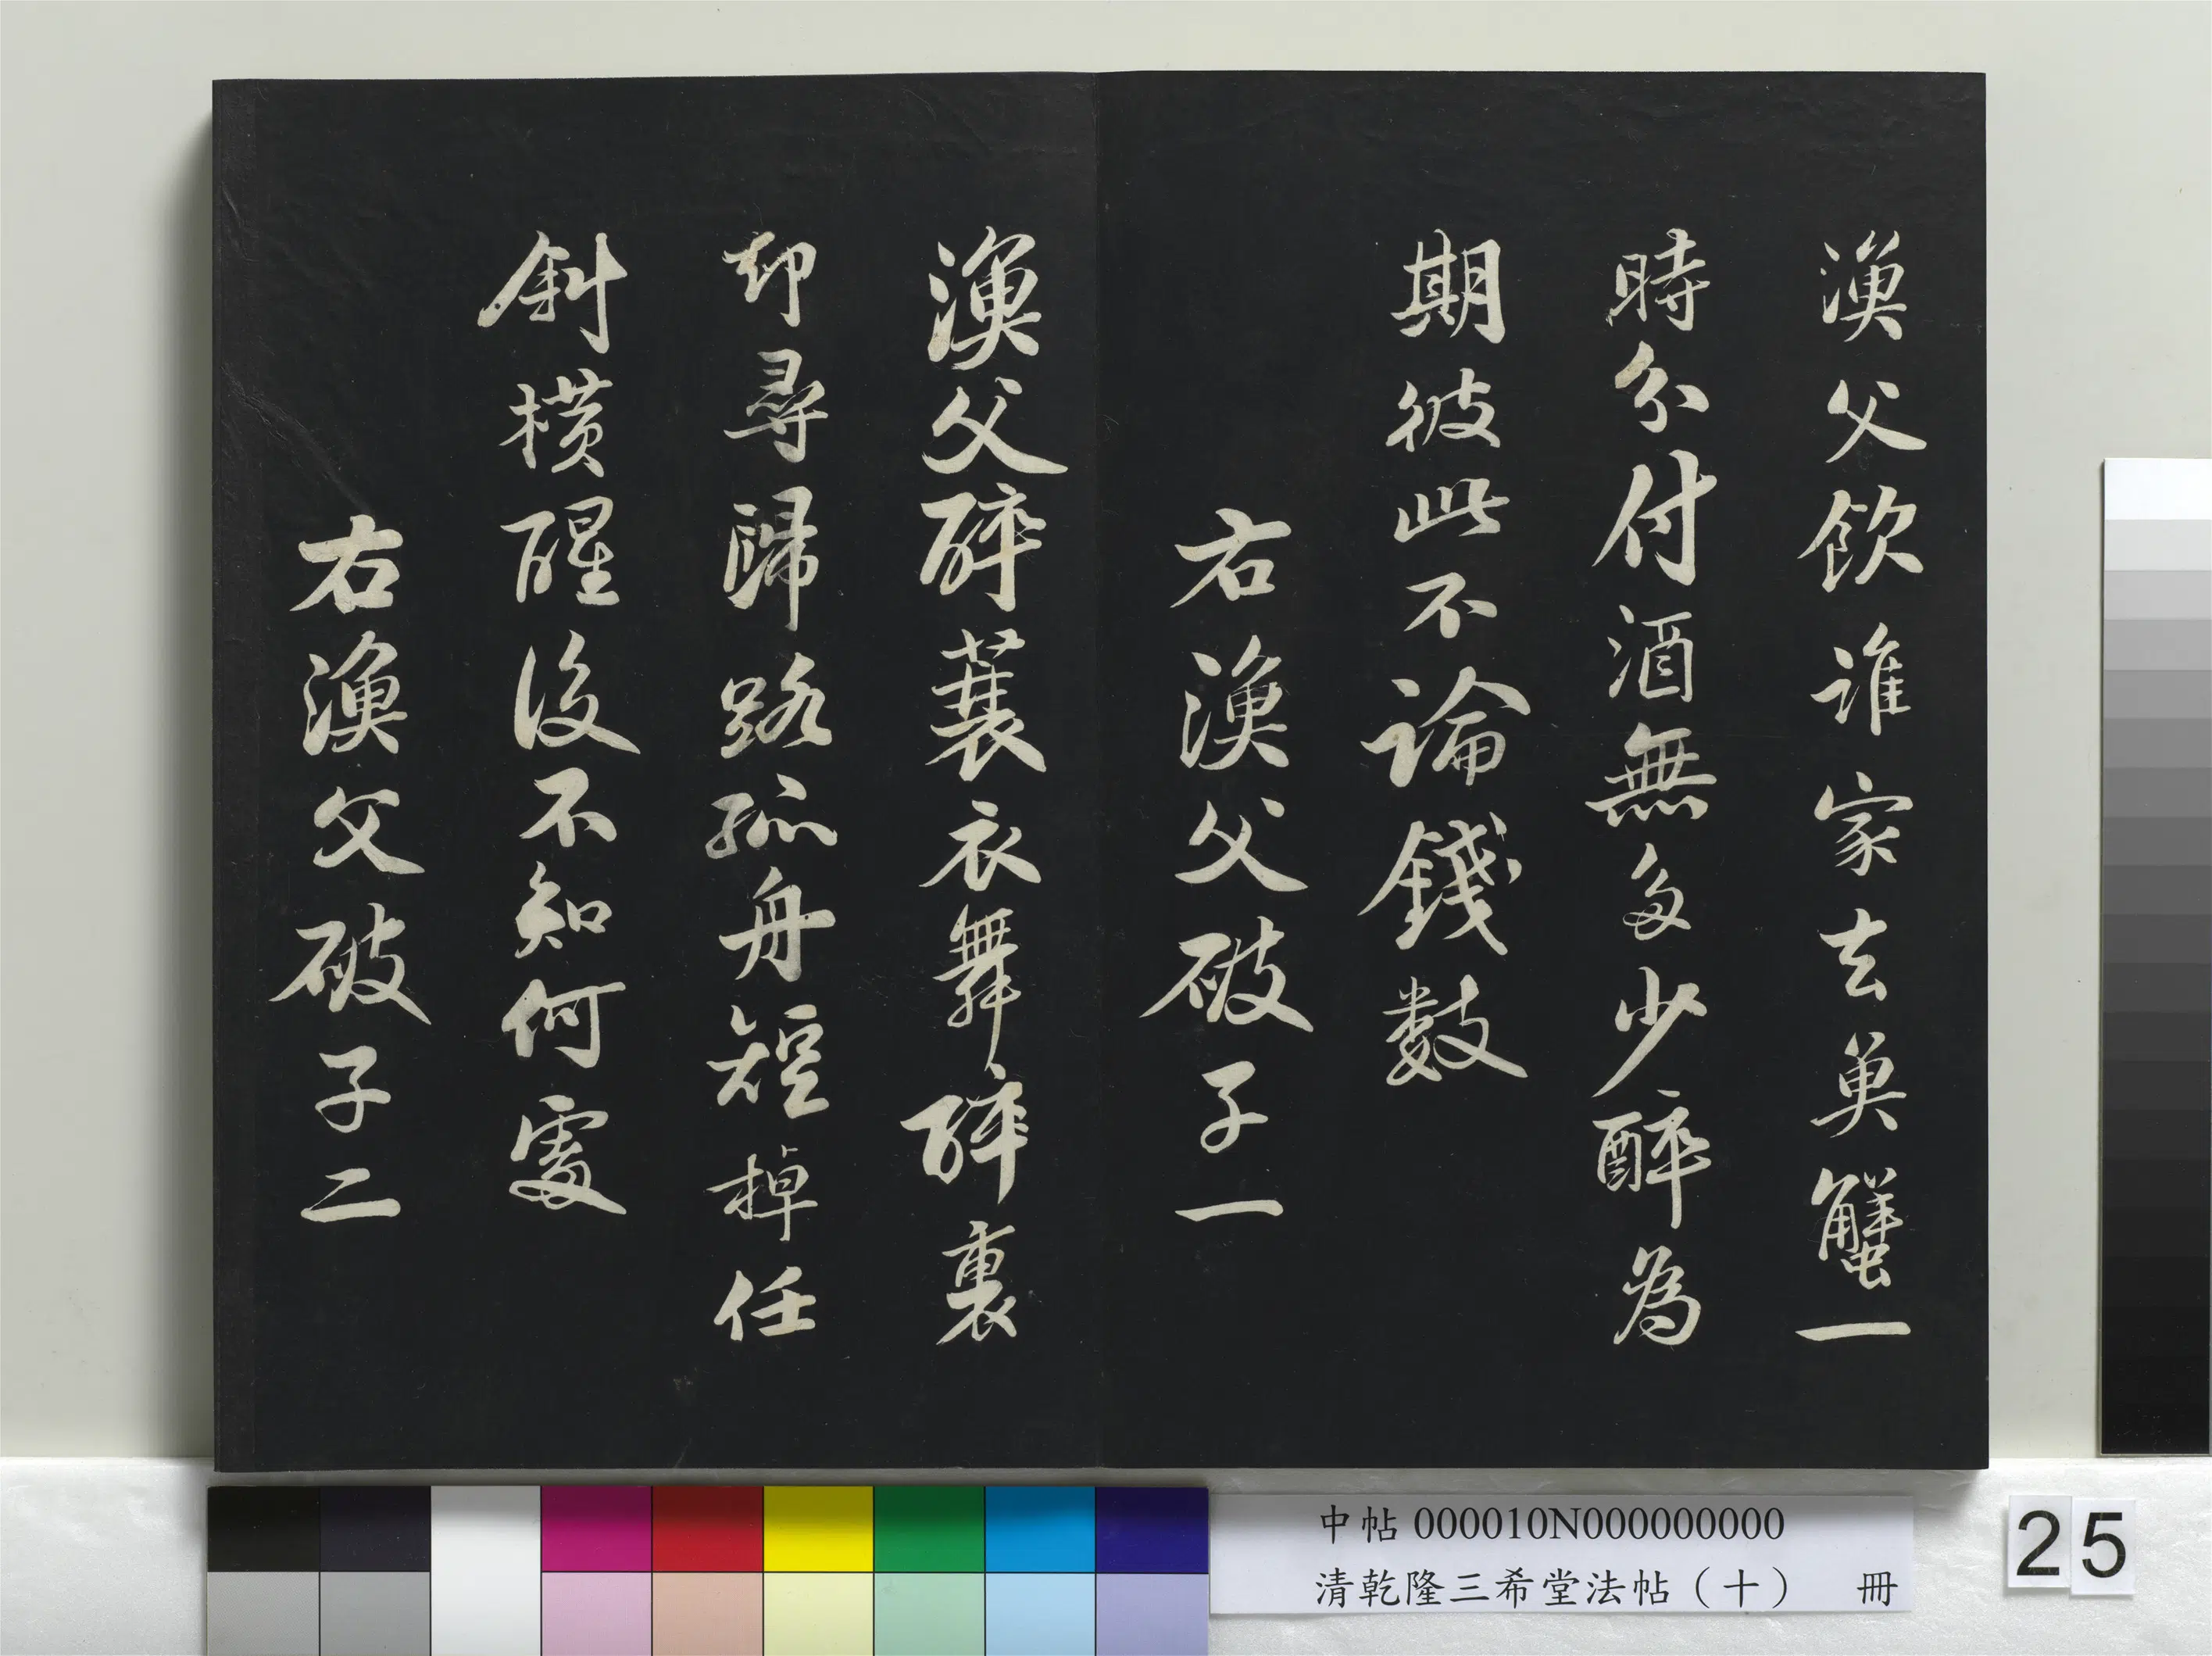 漁父飲誰家去魚蟹一
時分付酒無多少醉為
期彼此不論錢數
右漁父破子一
漁父醉蓑衣舞醉裏
却尋歸路孤舟短棹任
斜橫醒後不知何處
右漁父破子二
中帖 000010N000000000
清乾隆三希堂法帖（十） 冊
25